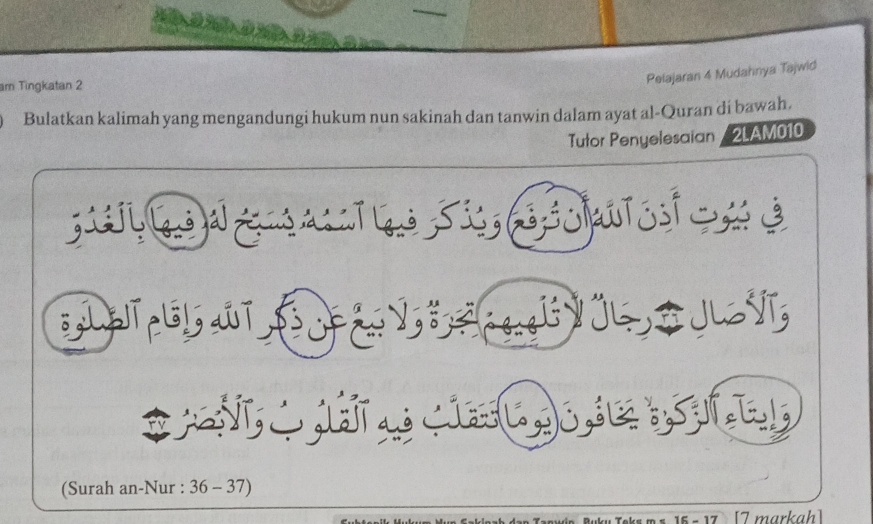 am Tingkatan 2
Pelajaran 4 Mudahnya Tajwid
) Bulatkan kalimah yang mengandungi hukum nun sakinah dan tanwin dalam ayat al-Quran di bawah.
Tutor Penyelesaian 2LAM010
فِي بُيُوتٍ أَذِنَ ٱللَّهُ أَن تُرۡفَعَ وَيُذۡكَرَ فِيهَا ٱسۡمُهُۥ يُسَبِّحُ لَهُۥ فِيهَا بِٱلۡغُدُوِّ
وَٱلۡأٓصَالِ ٣٦ رِجَالٞ لَّا تُلۡهِيهِمۡ تِجَٰرَةٞ وَلَا بَيۡعٌ عَن ذِكۡرِ ٱللَّهِ وَإِقَامِ ٱلصَّلَوٰةِ
وَإِيتَآءِ ٱلزَّكَوٰةِ يَخَافُونَ يَوۡمٗا تَتَقَلَّبُ فِيهِ ٱلۡقُلُوبُ وَٱلۡأَبۡصَٰرُ ٣٧
(Surah an-Nur : 36 – 37)
Hukum Nun Sakinah dan Tanwin Buku Teks m.s. 16 – 17 [7 markah]